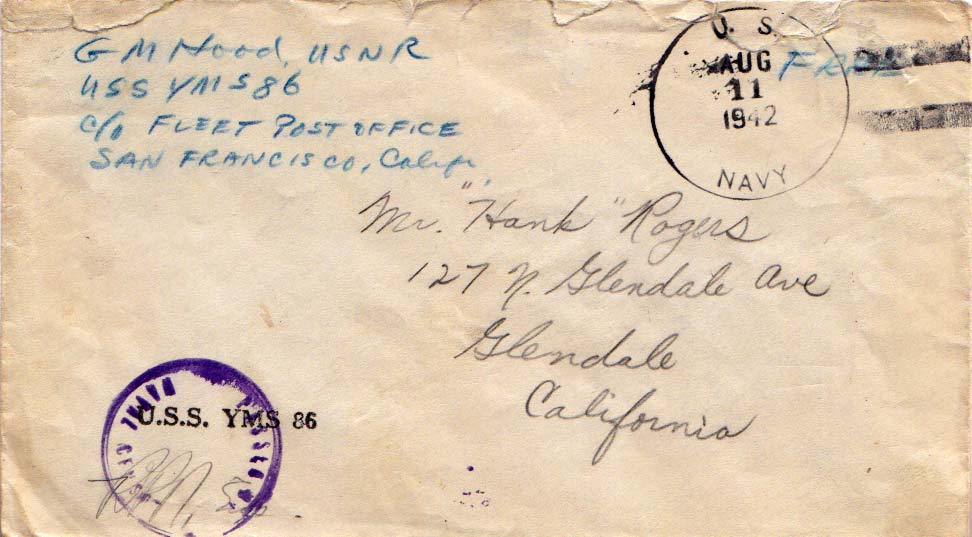 G M Hood, USNR
USS YMS 86
c/o FLEET POST OFFICE
SAN FRANCISCO, Calif.
U. S.
AUG
11
1942
NAVY
FREE
Mr. "Hank" Rogers
127 N. Glendale Ave
Glendale
California
U.S.S. YMS 86
PASSED
NAVAL